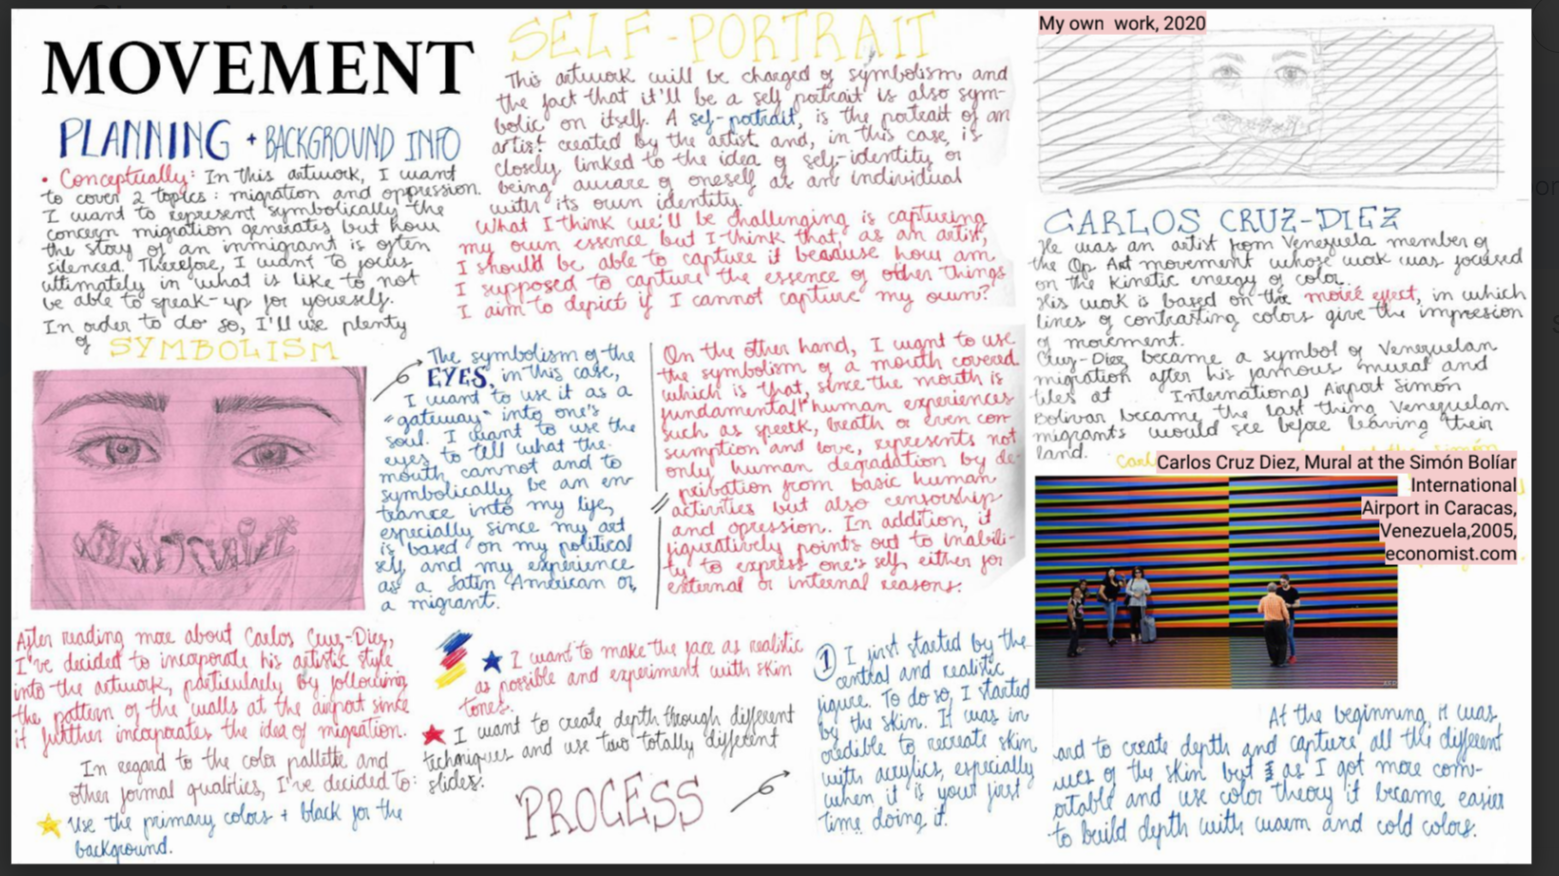 MOVEMENT
PLANNING + BACKGROUND INFO
• Conceptually: In this artwork, I want
to cover 2 topics: migration and oppression.
I want to represent symbolically the
concern migration generates but how
the story of an immigrant is often
silenced. Therefore, I want to focus
ultimately in what is like to not
be able to speak-up for yourself.
In order to do so, I'll use plenty
of SYMBOLISM
SELF-PORTRAIT
This artwork will be charged of symbolism and
the fact that it'll be a self portrait is also sym-
bolic on itself. A self-portrait, is the portrait of an
artist created by the artist and, in this case, is
closely linked to the idea of self-identity or
being aware of oneself as an individual
with its own identity.
What I think we'll be challenging is capturing
my own essence but I think that, as an artist,
I should be able to capture it beacuse how am
I supposed to capture the essence of other things
I aim to depict if I cannot capture my own?
The symbolism of the
EYES, in this case,
I want to use it as a
"gateway" into one's
soul. I want to use the
eyes to tell what the
mouth cannot and to
symbolically be an en-
trance into my life,
especially since my art
is based on my political
self and my experience
as a Latin American or,
a migrant.
On the other hand, I want to use
the symbolism of a mouth covered
which is that, since the mouth is
fundamental human experiences
such as speek, breath or even con-
sumption and love, represents not
only human degradation by de-
privation from basic human
activities but also censorship
and opression. In addition, it
figuratively points out to inabili-
ty to express one's self either for
external or internal reasons.
After reading more about Carlos Cruz-Diez,
I've decided to incorporate his artistic style
into the artwork, particularly by following
the pattern of the walls at the airport since
it further incorporates the idea of migration.
In regard to the color pallette and
other formal qualities, I've decided to:
Use the primary colors + black for the
background.
I want to make the face as realistic
as possible and experiment with skin
tones.
I want to create depth through different
techniques and use two totally different
slides.
PROCESS
1 I first started by the
central and realistic
figure. To do so, I started
by the skin. It was in
credible to recreate skin
with acrylics, especially
when it is your first
time doing it.
My own work, 2020
CARLOS CRUZ-DIEZ
He was an artist from Venezuela member of
the Op Art movement whose work was focused
on the kinetic energy of color.
His work is based on the moiré effect, in which
lines of contrasting colors give the impresion
of movement.
Cruz-Diez became a symbol of Venezuelan
migration after his famous mural and
tiles at International Airport Simón
Bolivar became the last thing Venezuelan
migrants would see before leaving their
land.
Carlos Cruz Diez, Mural at the Simón Bolíar
International
Airport in Caracas,
Venezuela,2005,
economist.com
At the beginning, it was
ard to create depth and capture all the different
ues of the skin but as I got more com-
ortable and use color theory it became easier
to build depth with warm and cold colors.